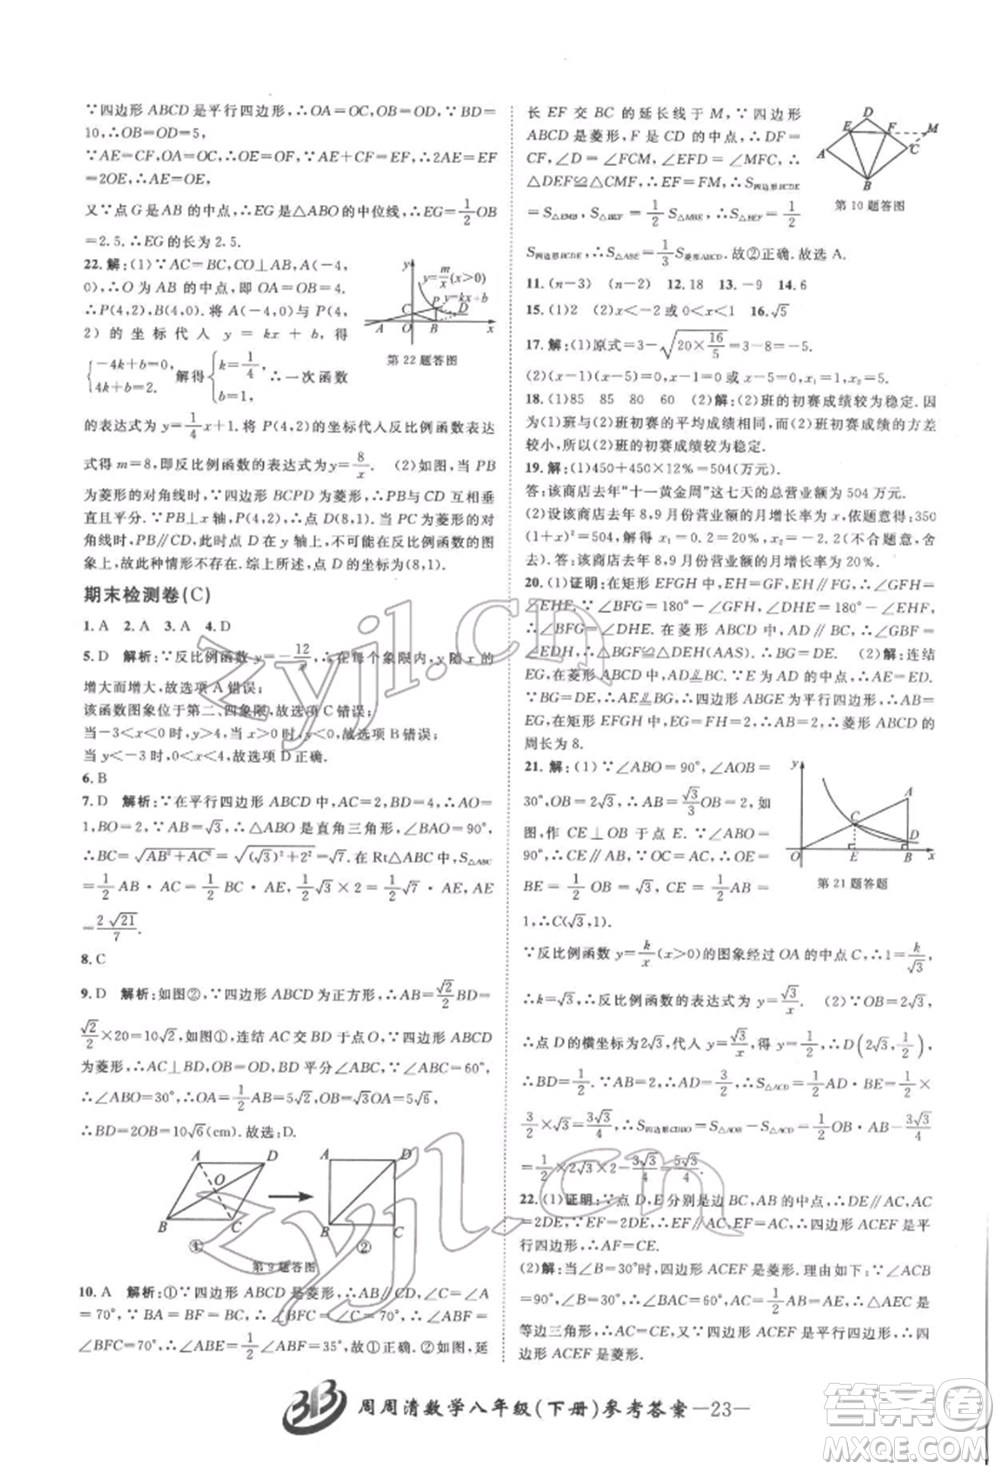 ∵四边形 ABCD 是平行四边形,∴OA=OC,OB=OD.∵BD=
10,∴OB=OD=5,
∵AE=CF,OA=OC,∴OE=OF.∵AE+CF=EF,∴2AE=EF
=2OE,∴AE=OE.
又∵点 G 是 AB 的中点,∴EG 是△ABO 的中位线,∴EG=1/2 OB
=2.5,∴EG 的长为 2.5.
22.解:(1)∵AC=BC,CO⊥AB,A(-4,
0),∴O 为 AB 的中点,即 OA=OB=4,
∴P(4,2),B(4,0).将 A(-4,0)与 P(4,
2) 的 坐 标 代 入 y = kx + b, 得
{-4k+b=0, 4k+b=2, 解得{k=1/4, b=1, ∴一次函数
的表达式为 y=1/4 x+1.将 P(4,2)的坐标代入反比例函数表达
式得 m=8,即反比例函数的表达式为 y=8/x. (2)如图,当 PB
为菱形的对角线时,∵四边形 BCPD 为菱形,∴PB 与 CD 互相
垂直且平分.∵PB⊥x 轴,∴点 D(8,1).当 PC 为菱形的对
角线时,PB∥CD,此时点 D 在 y 轴上,不可能在反比例函数的图
象上,故此种情形不存在.综上所述,点 D 的坐标为(8,1).
y
y=m/x(x>0)
y=kx+b
P
D
C
A
O
B
x
第 22 题答图
期末检测卷(C)
1.A 2.A 3.A 4.D
5.D 解析:∵反比例函数 y=-12/x,∴在每个象限内,y 随 x 的
增大而增大,故选项 A 错误;
该函数图象位于第二、四象限,故选项 C 错误;
当-3<x<0 时,y>4,故选项 B 错误;
当 y<-3 时,x<4,故选项 D 正确.
6.B
7.D 解析:∵在平行四边形 ABCD 中,AC=2,BD=4,∴AO=
1,BO=2.∵AB=√3,∴△ABO 是直角三角形,∠BAO=90°,
∴BC=√(AB²+AC²)=√((√3)²+2²)=√7.在 Rt△ABC 中,S△ABC
=1/2 AB·AC=1/2 BC·AE,∴1/2×√3×2=1/2×√7·AE,∴AE
=2√21/7.
8.C
9.D 解析:如图②,∵四边形 ABCD 为正方形,∴AB=√2/2 BD=
√2/2×20=10√2,如图①,连结 AC 交 BD 于点 O,∵四边形 ABCD
为菱形,∴AC⊥BD,BD 平分∠ABC,OB=OD,∵∠ABC=60°,
∴∠ABO=30°,∴OA=1/2 AB=5√2,∴OB=√3 OA=5√6,
∴BD=2OB=10√6(cm).故选:D.
A
D
O
B
C
①
A
D
B
C
②
第 9 题答图
10.A 解析:①∵四边形 ABCD 是菱形,∴AB=BC,∠ABC=
∠A=70°,∵BA=BF=BC,∴BE⊥CD,∴∠ABF=∠BFC=
∠BFC=70°,∴∠ABE=1/2∠ABF=35°,故①正确.②如图,延
长 EF 交 BC 的延长线于 M,∵四边形
ABCD 是菱形,F 是 CD 的中点,∴DF=
CF,∠D=∠FCM,∠EFD=∠MFC,
∴△DEF≌△CMF,∴EF=FM,∴S四边形BCDE
=S△EMB,S△BEF=1/2 S△MBE,∴S△BEF=1/2
S四边形BCDE,∴S△ABE=1/3 S菱形ABCD.故②正确.故选 A.
D
E
F
M
A
C
B
第 10 题答图
11.(n-3) (n-2) 12.18 13.-9 14.6
15.(1)2 (2)x<-2 或 0<x<1 16.√5
17.解:(1)原式=3-√(20×16/5)=3-8=-5.
(2)(x-1)(x-2)=0,x-1=0 或 x-2=0,x₁=1,x₂=2.
18.(1)85 85 80 60 (2)解:(2)班的初赛成绩较为稳定.因
为(1)班与(2)班初赛的平均成绩相同,而(2)班初赛成绩的方差
较小,所以(2)班的初赛成绩较为稳定.
19.解:(1)450+450×12%=504(万元).
答:该商店去年“十一黄金周”这七天的总营业额为 504 万元.
(2)设该商店去年 8,9 月份营业额的月增长率为 x,依题意得:350
(1+x)²=504,解得 x₁=0.2,x₂=-2.2(不合题意,舍去).
答:该商店去年 8、9 月份营业额的月增长率为 20%.
20.(1)证明:在矩形 EFGH 中,EH=FG,EH∥FG,∴∠GFH=
∠EHF.∵∠BFG=180°-∠GFH,∠DHE=180°-∠EHF,
∴∠BFG=∠DHE.在菱形 ABCD 中,AD∥BC,∴∠GBF=
∠EDH,∴△BGF≌△DEH(AAS),∴BG=DE. (2)解:连结
EG,在菱形 ABCD 中,AD∥BC,AD=BC.∵E 为 AD 中点,∴AE=ED.
∵BG=DE,∴AE=BG,∴四边形 ABGE 为平行四边形,∴AB=
EG.在矩形 EFGH 中,EG=FH=2,∴AB=2,∴菱形 ABCD 的
周长为 8.
21.解:(1)∵∠ABO=90°,∠AOB=
30°,OB=2√3,∴AB=√3/3 OB=2.如
图,作 CE⊥OB 于点 E.∵∠ABO=
90°,∴CE∥AB.∵OC=AC,∴OE=
BE=1/2 OB=√3,CE=1/2 AB=
1,∴C(√3,1).
∵反比例函数 y=k/x(x>0)的图象经过 OA 的中点 C,∴1=k/√3,
∴k=√3,∴反比例函数的表达式为 y=√3/x. (2)∵OB=2√3,
∴点 D 的横坐标为 2√3,代入 y=√3/x,得 y=1/2,∴D(2√3,1/2),
∴BD=1/2.∵AB=2,∴AD=3/2,∴S△ACD=1/2 AD·BE=1/2×
3/2×√3=3√3/4,∴S四边形CDBO=S△AOB-S△ACD=1/2 OB·AB-3√3/4
=1/2×2√3×2-3√3/4=5√3/4.
y
A
C
D
O
E
B
x
第 21 题答题
22.(1)证明:∵点 D,E 分别是边 BC,AB 上的中点,∴DE∥AC,AC
=2DE,∵EF=2DE,∴EF∥AC,EF=AC,∴四边形 ACEF 是平
行四边形,∴AF=CE.
(2)解:当∠B=30°时,四边形 ACEF 为菱形.理由如下:∵∠ACB
=90°,∠B=30°,∴∠BAC=60°,AC=1/2 AB=AE,∴△AEC 是
等边三角形,∴AC=CE.又∵四边形 ACEF 是平行四边形,∴四
边形 ACEF 是菱形.
周周清数学八年级(下册)参考答案 —23—
zyjl.cn
zyjl.cn
答案圈
MXQE.COM